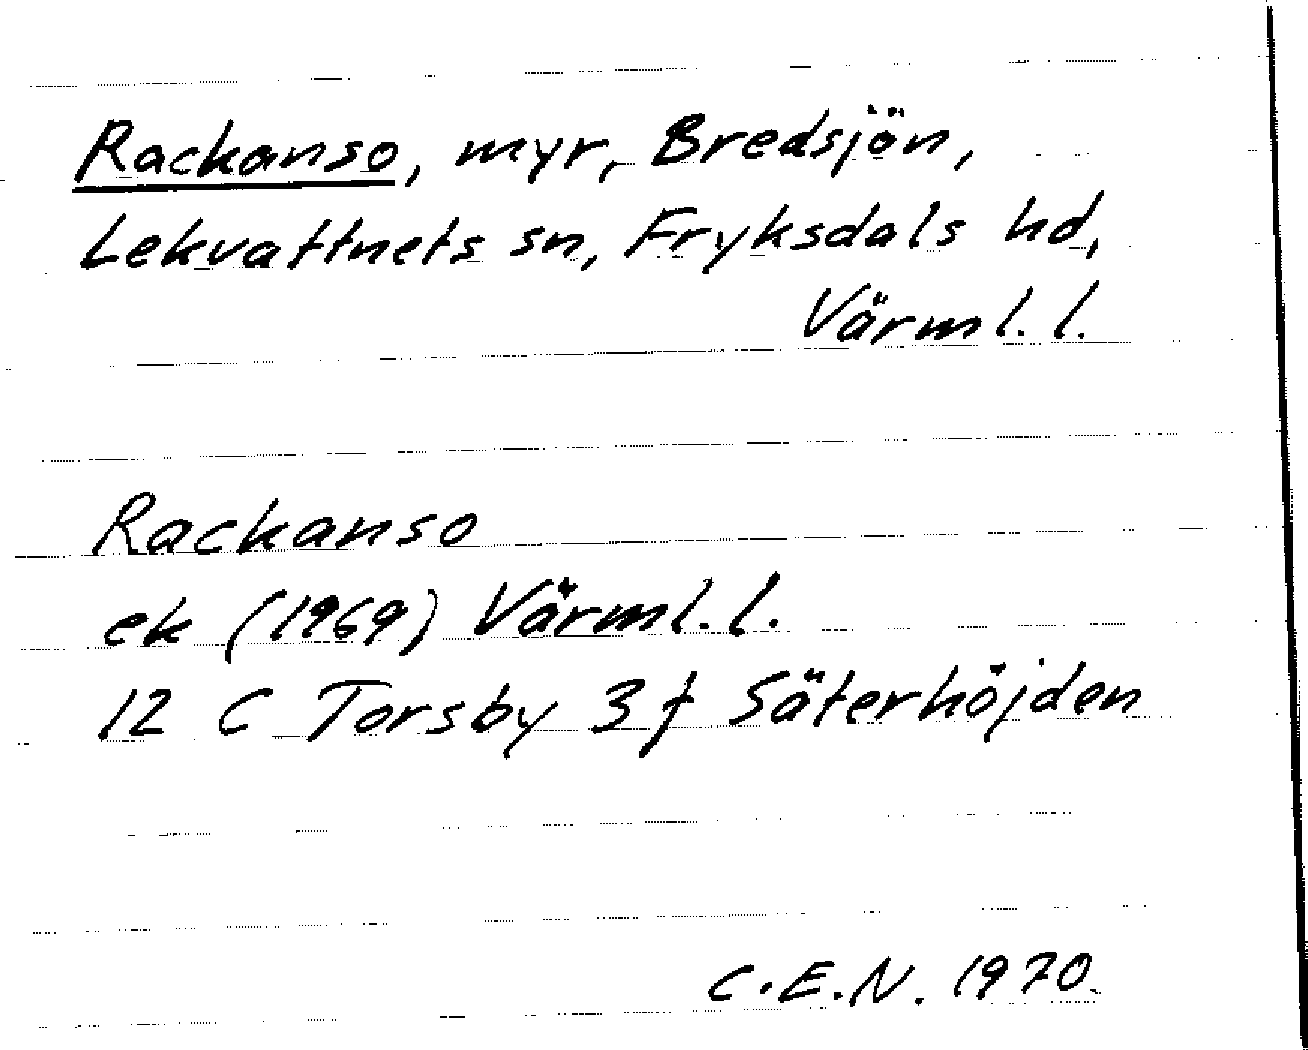 Rackanso, myr, Bredsjön,
Lekvattnets sn, Fryksdals hd,
Värml. l.
Rackanso
ek (1969) Värml. l.
12 C Torsby 3 f Säterhöjden
C.E.N. 1970